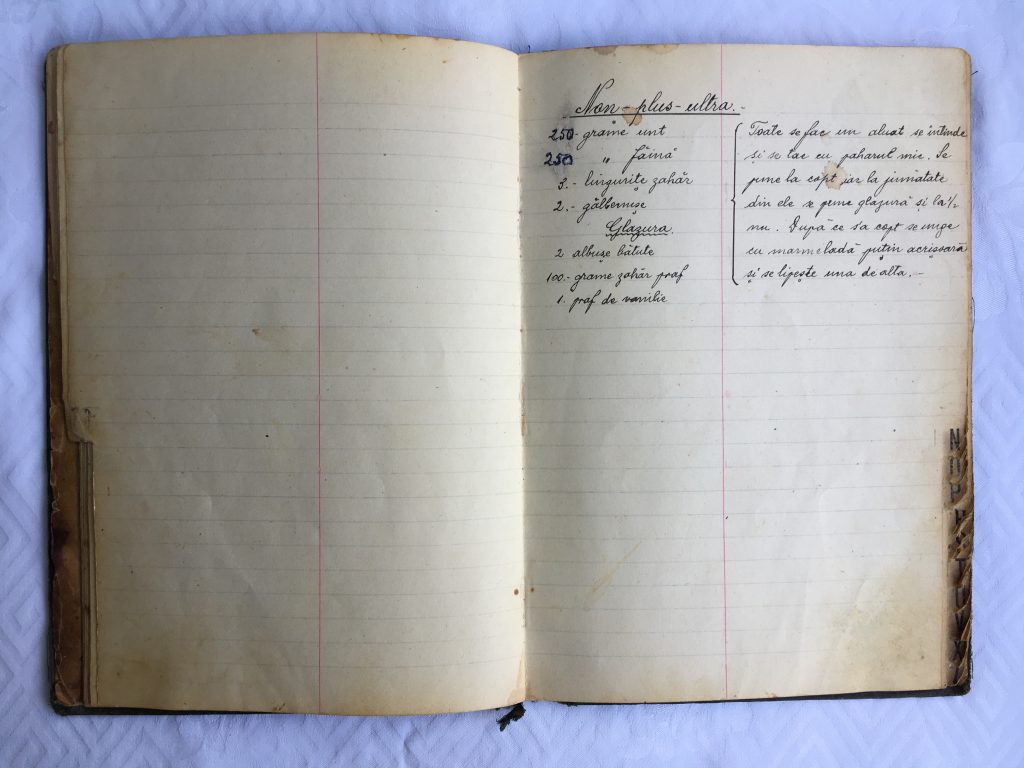 Non-plus-ultra.-
250- grame unt
250 " făină
3.- lingurițe zahăr
2.- gălbenușe
Glazura.
2 albușe bătute
100.- grame zahăr praf
1. praf de vanilie
Toate se fac un aluat se întinde
și se tae cu paharul mic. Se
pune la copt iar la jumătate
din ele se pune glazură și la ½
nu. După ce s'a copt se unge
cu marmeladă puțin acrișoară
și se lipește una de alta.-
N
P
T